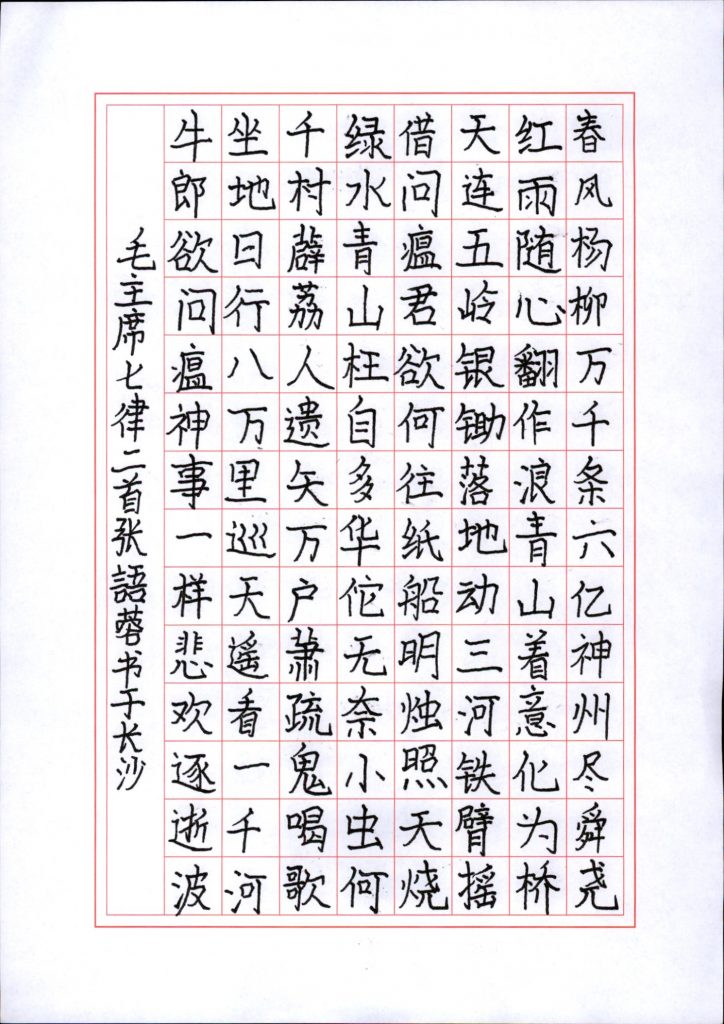 春风杨柳万千条六亿神州尽舜尧
红雨随心翻作浪青山着意化为桥
天连五岭银锄落地动三河铁臂摇
借问瘟君欲何往纸船明烛照天烧
绿水青山枉自多华佗无奈小虫何
千村薜荔人遗矢万户萧疏鬼喝歌
坐地日行八万里巡天遥看一千河
牛郎欲问瘟神事一样悲欢逐逝波
毛主席七律二首张語蓉书于长沙